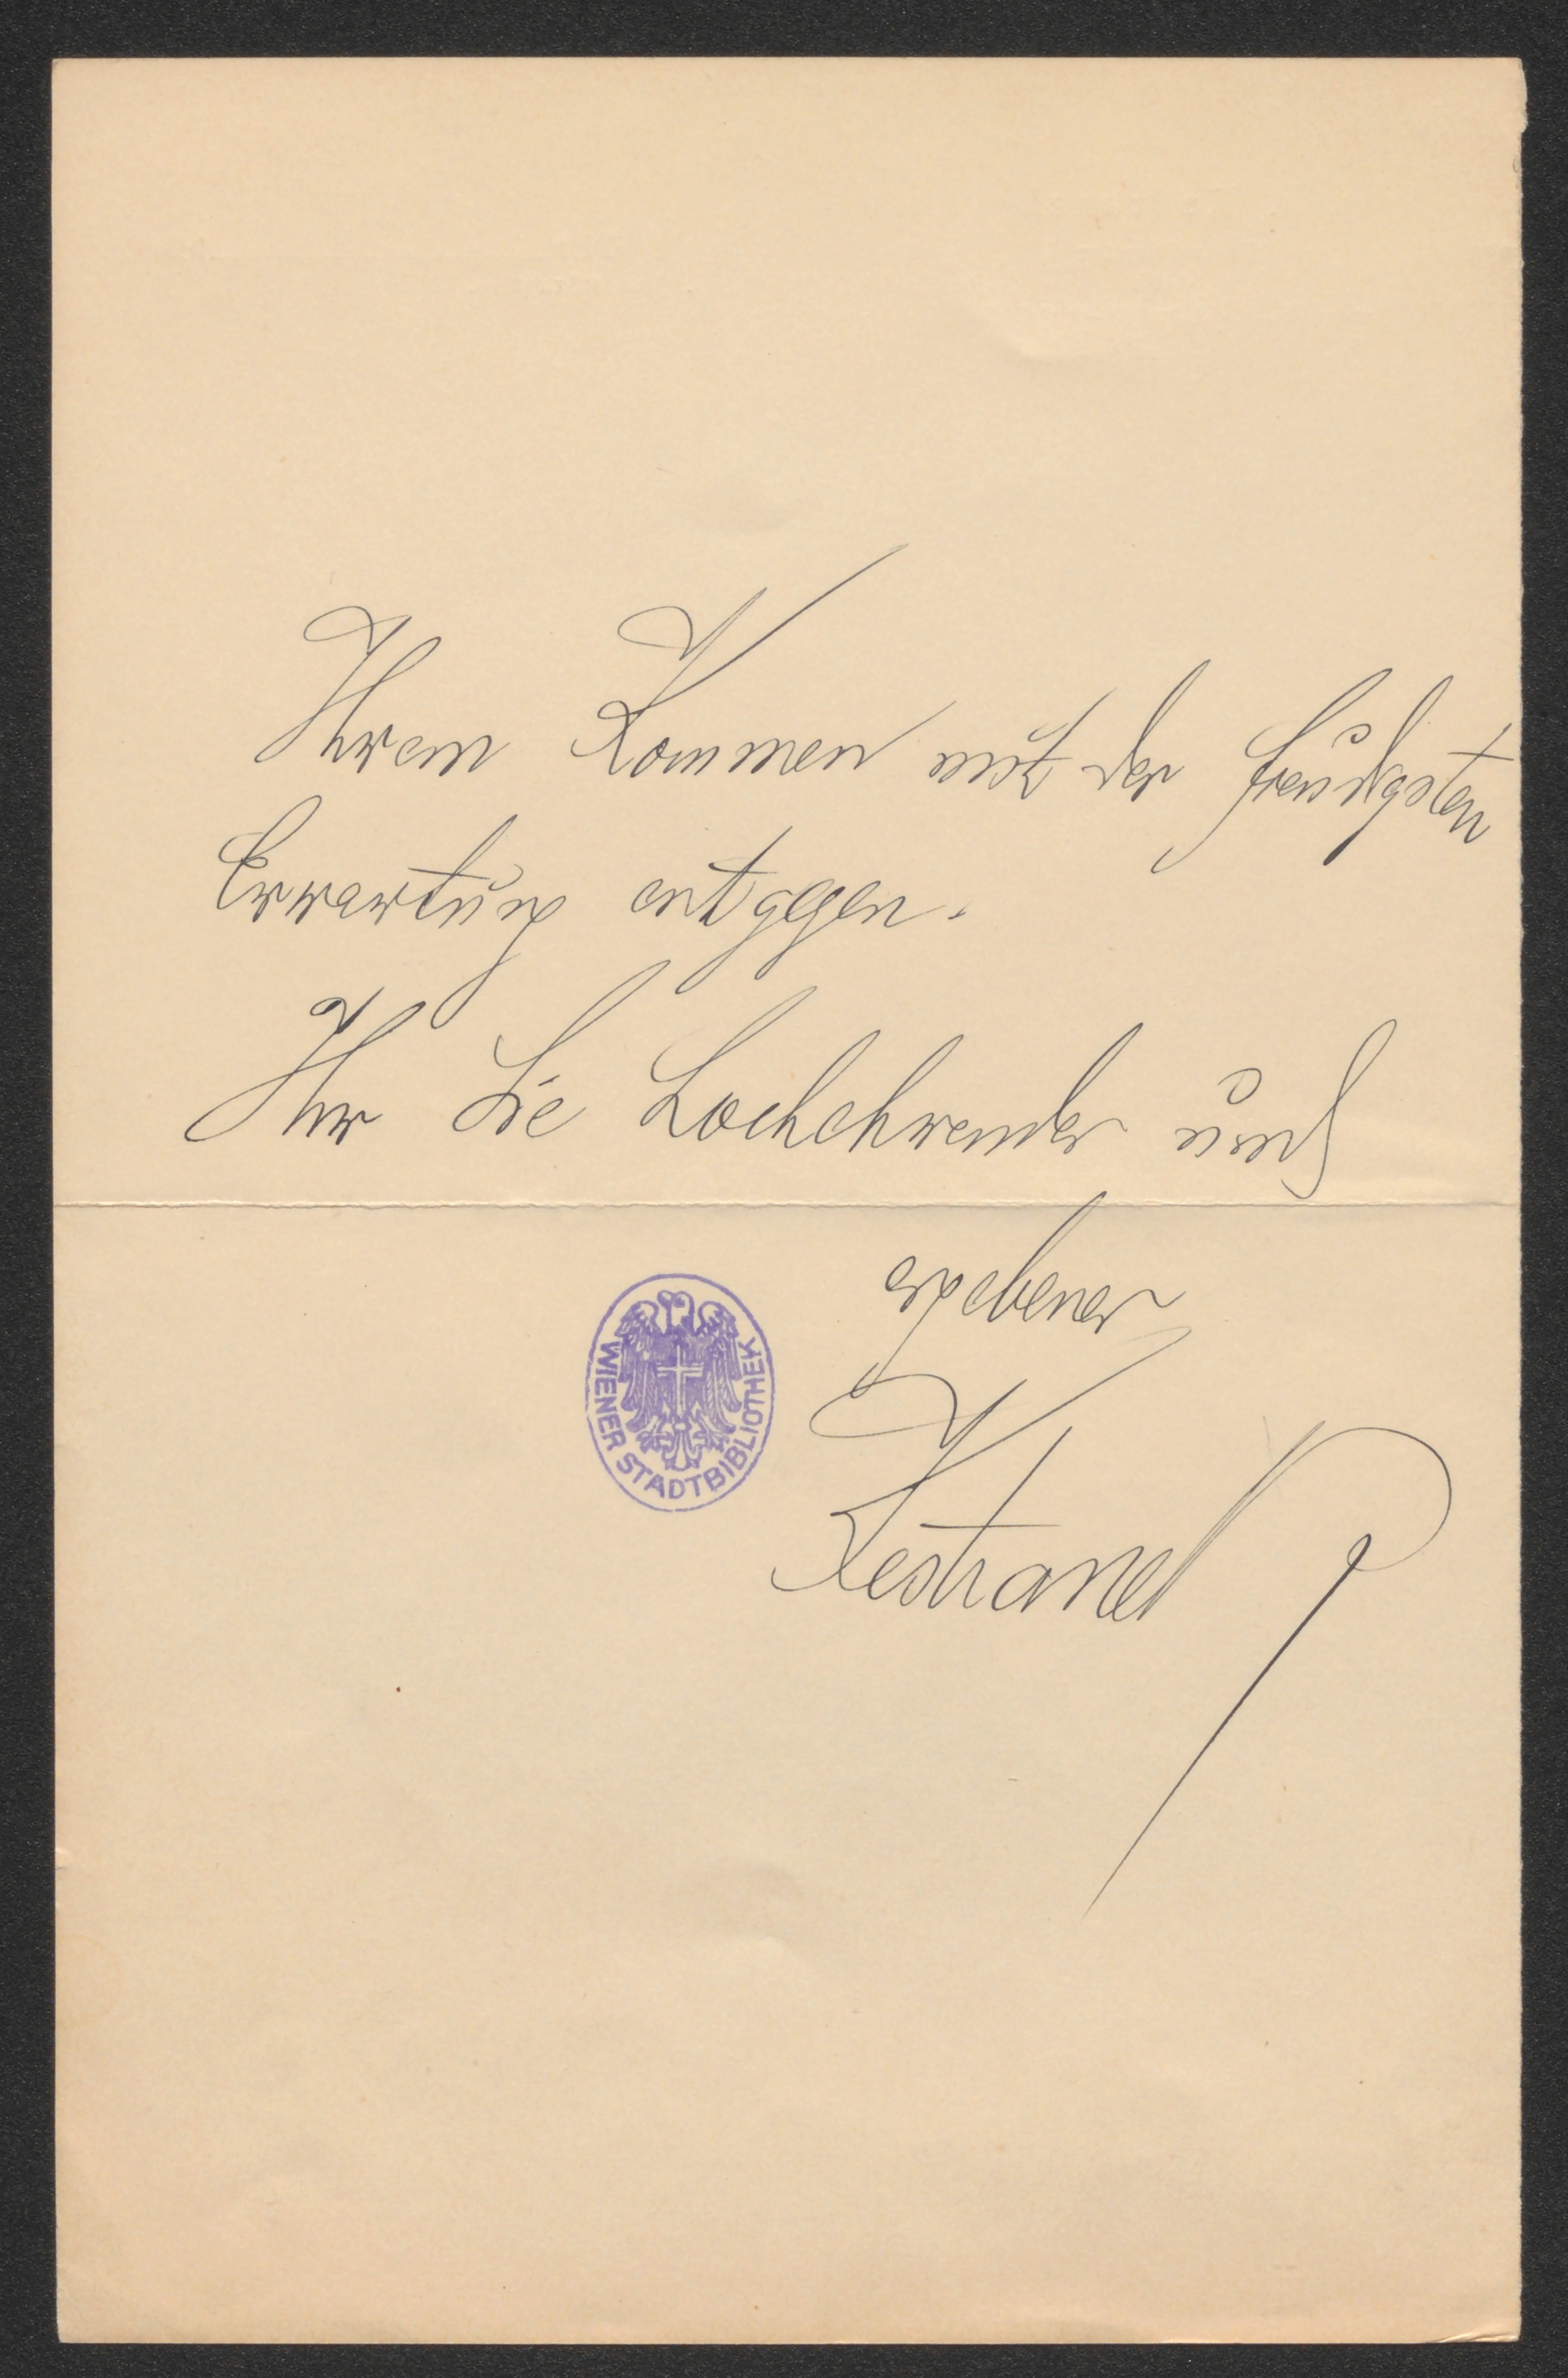 Ihrem Kommen mit der freudigsten
Erwartung entgegen.
Ihr Sie hochehrender und
ergebener
Kestranek
WIENER STADTBIBLIOTHEK